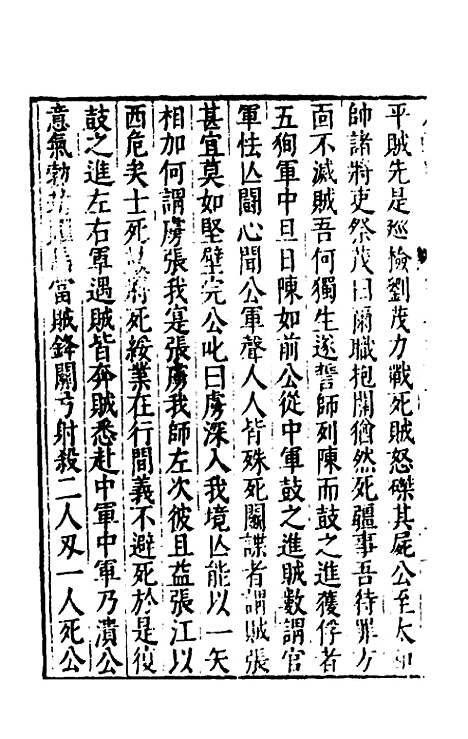 平賊先是巡檢劉茂力戰死賊怒磔其屍公至太
帥諸將吏祭茂曰爾職抱關猶然死疆事吾待罪方
面不滅賊吾何獨生遂誓師列陳而鼓之進獲俘者
五狥軍中旦日陳如前公從中軍鼓之進賊數謂官
軍怯亾鬪心聞公軍聲人人皆殊死鬪諜者謂賊張
甚宜莫如堅壁完公叱曰虜深入我境亾能以一矢
相加何謂虜張我寔張虜我師左次彼且益張江以
西危矣士死將死綏業在行間義不避死於是復
鼓之進左右軍遇賊皆奔賊悉赴中軍中軍乃潰公
意氣勃當賊鋒關弓射殺二人刄一人死公